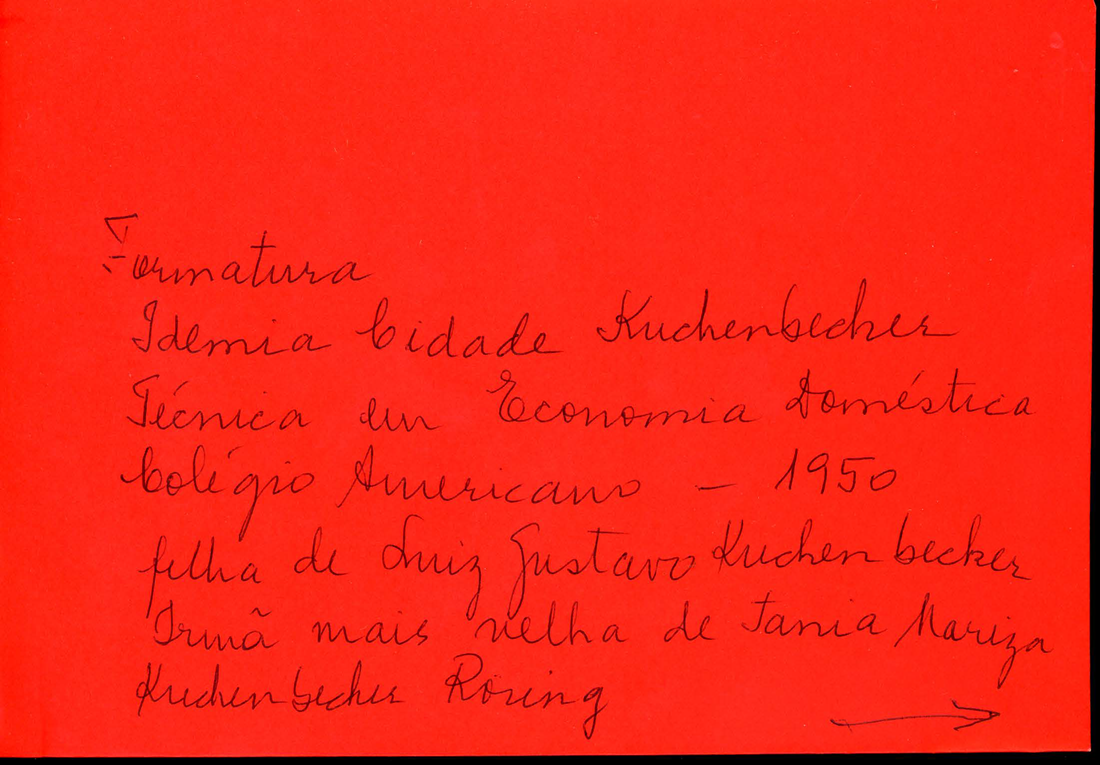 Formatura
Idemia Cidade Kuchenbecker
Técnica em Economia Doméstica
Colégio Americano – 1950
filha de Luiz Gustavo Kuchenbecker
Irmã mais velha de Tania Mariza
Kuchenbecker Rösing